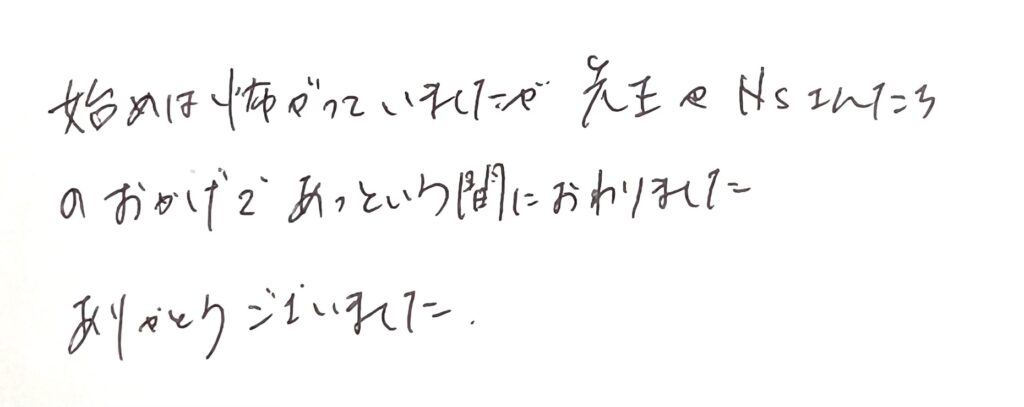 始めは怖がっていましたが先生やNsさんたち
のおかげであっという間におわりました
ありがとうございました.